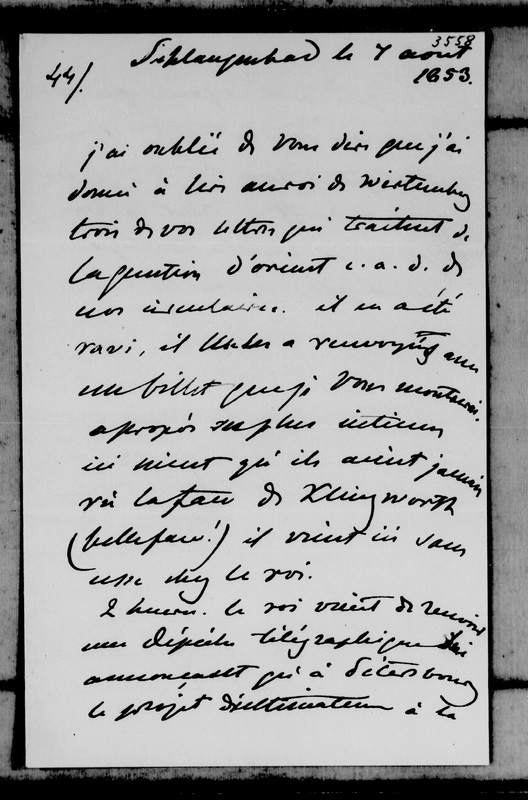 3558
44/.
Schlangenbad le 7 août
1853.
j'ai oublié de vous dire que j'ai
donné à lire au roi de Wirtemberg
trois de vos lettres qui traitent de
la question d'orient c. a. d. de
nos circulaires. il en a été
ravi, il me les a renvoyées avec
un billet que je vous montrerai.
apropos ses plus intimes
ici nient qu'ils aient jamais
vu la face de Klingworth
(belle face!) il vient ici sans
cesse chez le roi.
2 heures. le roi vient de recevoir
une dépêche télégraphique lui
annonçant qu'à Pétersbourg
le projet d'ultimatum à la